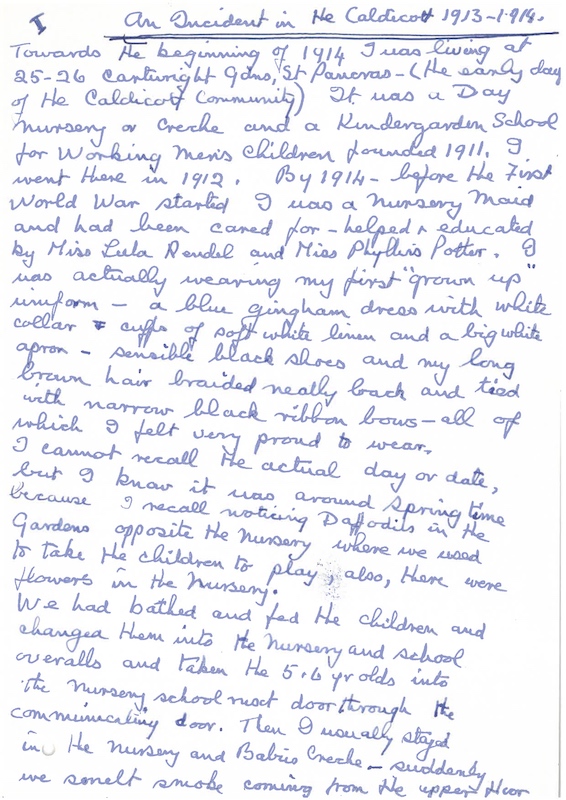 I
An Incident in the Caldicott 1913-1914.
Towards the beginning of 1914 I was living at
25-26 Cartwright Gdns, St Pancras - (the early day
of the Caldicott Community) It was a Day
Nursery or Creche and a Kindergarden School
for Working Men's Children founded 1911. I
went there in 1912. By 1914 - before the First
World War started I was a Nursery Maid
and had been cared for - helped & educated
by Miss Lula Rendel and Miss Phyllis Potter. I
was actually wearing my first "grown up"
uniform - a blue gingham dress with white
collar & cuffs of soft white linen and a big white
apron - sensible black shoes and my long
brown hair braided neatly back and tied
with narrow black ribbon bows - all of
which I felt very proud to wear.
I cannot recall the actual day or date,
but I know it was around Spring time
because I recall noticing Daffodils in the
Gardens opposite the Nursery where we used
to take the children to play, also, there were
flowers in the Nursery.
We had bathed and fed the children and
changed them into the Nursery and school
overalls and taken the 5.6 yr olds into
the Nursery school next door through the
communicating door. Then I usually stayed
in the Nursery and Babies Creche - suddenly
we smelt smoke coming from the upper floor